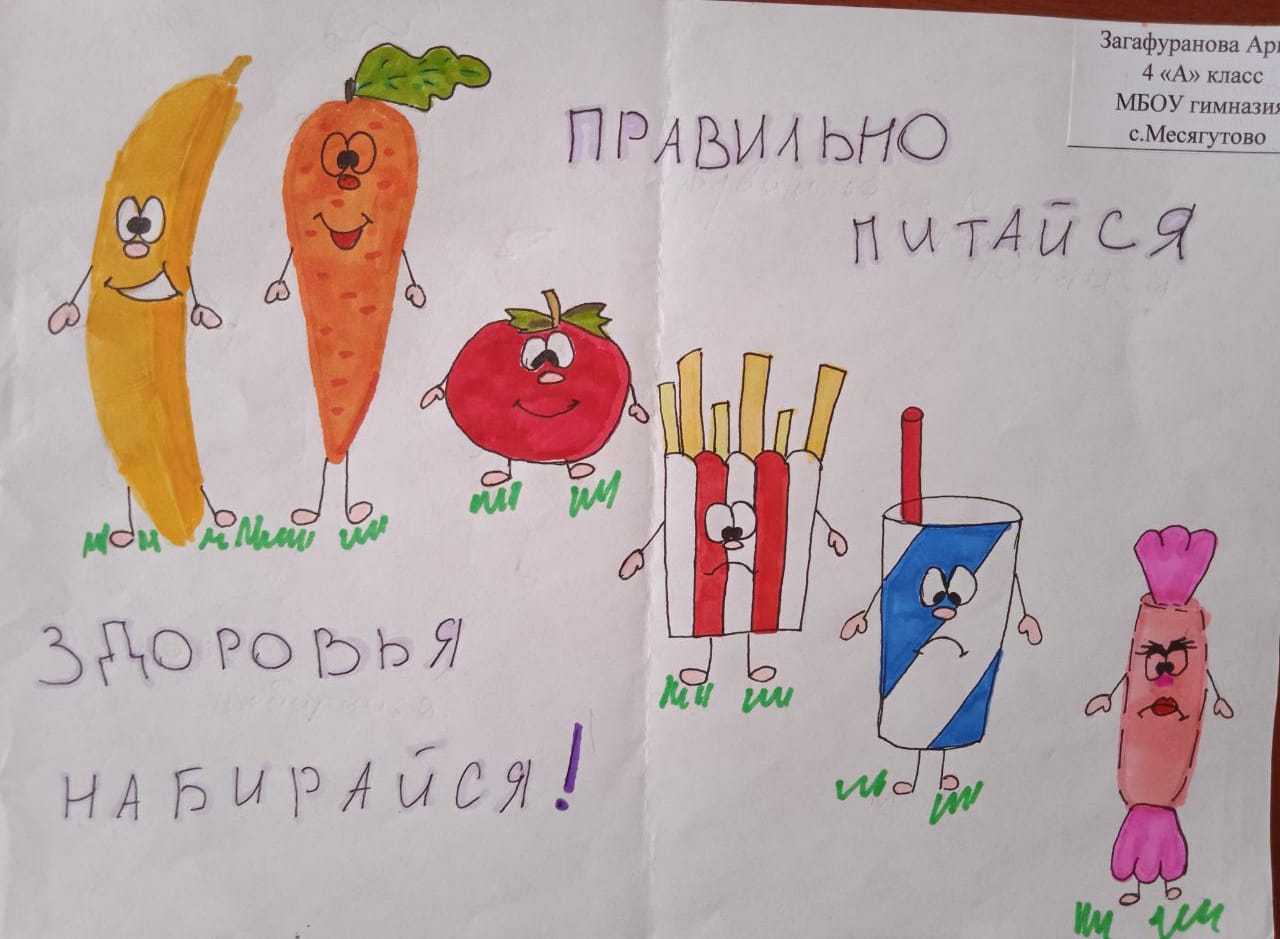 Загафуранова
4 «А» класс
МБОУ гимназия
с.Месягутово
ПРАВИЛЬНО
ПИТАЙСЯ
ЗДОРОВЬЯ
НАБИРАЙСЯ!